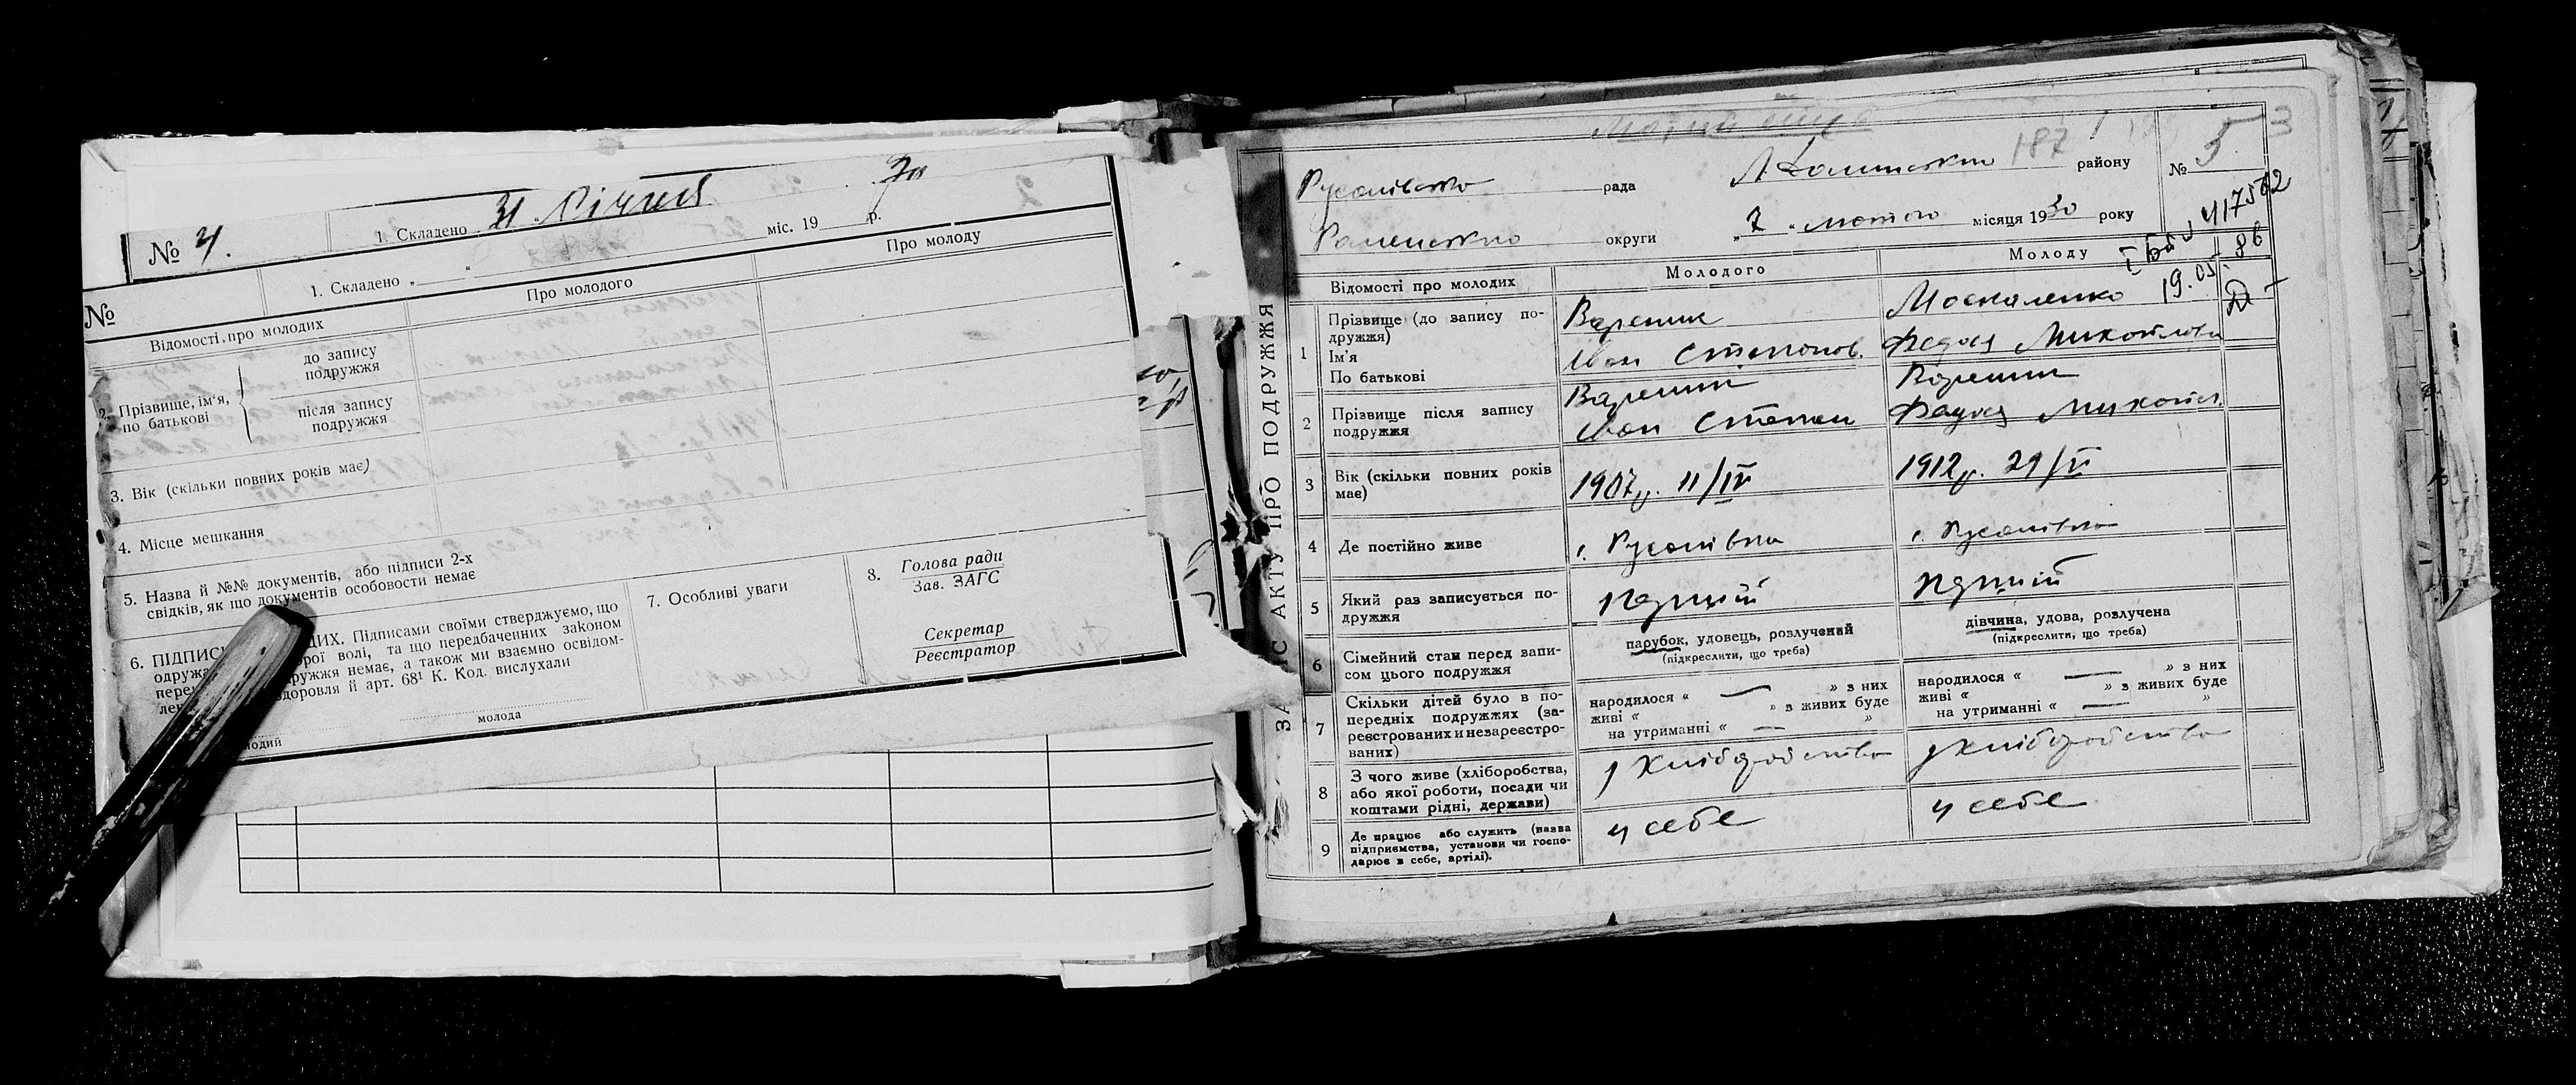 № 4.
1. Складено 31 Січня 30
№
1. Складено „ “ міс. 19 р.
Відомості про молодих
Про молодого
Про молоду
2. Прізвище, ім'я, по батькові
до запису подружжя
після запису подружжя
3. Вік (скільки повних років має)
4. Місце мешкання
5. Назва й №№ документів, або підписи 2-х
свідків, як що документів особовости немає
6. ПІДПИС ДИХ. Підписами своїми стверджуємо, що
одруж рої волі, та що передбаченних законом
пере ружжя немає, а також ми взаємно освідом-
лен здоровля й арт. 68¹ К. Код. вислухали
молодий
молода
7. Особливі уваги
8. Голова ради
Зав. ЗАГС
Секретар
Реєстратор
ЗАПИС АКТУ ПРО ПОДРУЖЖЯ
187
3
рада
району
№ 5
округи
„ 7 “ лютого місяця 1930 року
417562
19.05 86
Відомості про молодих
Молодого
Молоду
1
Прізвище (до запису по-
дружжя)
Ім'я
По батькові
Вареник
Иван Степанов.
Москаленко
Федося Михайлови
2
Прізвище після запису
подружжя
Вареник
Иван Степан
Вареник
Федося Михайл.
3
Вік (скільки повних років
має)
1907р. 11/IV
1912р. 29/V
4
Де постійно живе
с. Русанівка
с. Русанівка
5
Який раз записується по-
дружжя
перший
перший
6
Сімейний стан перед запи-
сом цього подружжя
парубок, удовець, розлучений
(підкреслити, що треба)
дівчина, удова, розлучена
(підкреслити, що треба)
7
Скільки дітей було в по-
передніх подружжях (за-
реєстрованих и незареєстро-
ваних)
народилося « — » з них
живі « » з живих буде
на утриманні « — »
народилося « — » з них
живі « » з живих буде
на утриманні « — »
8
З чого живе (хліборобства,
або якої роботи, посади чи
коштами рідні, держави)
з хліборобства
з хліборобства
9
Де працює або служить (назва
підприємства, установи чи госпо-
дарює в себе, артілі).
у себе
у себе